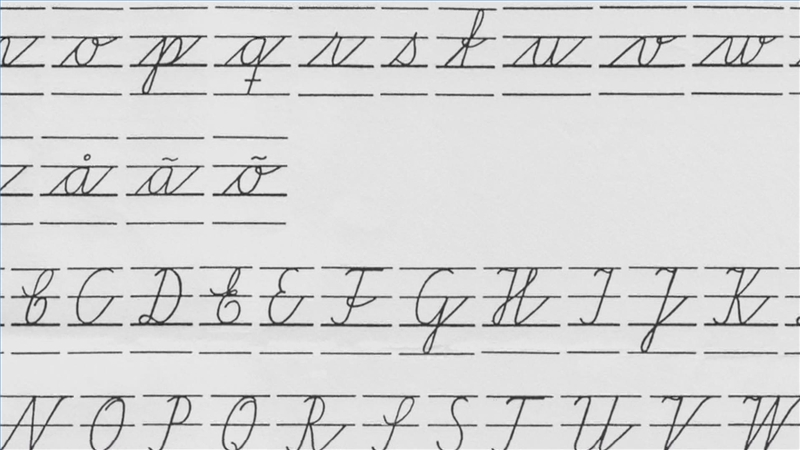 o p q r s t u v w
å ã õ
C C D E E F G H I J K
N O P Q R S S T U V W